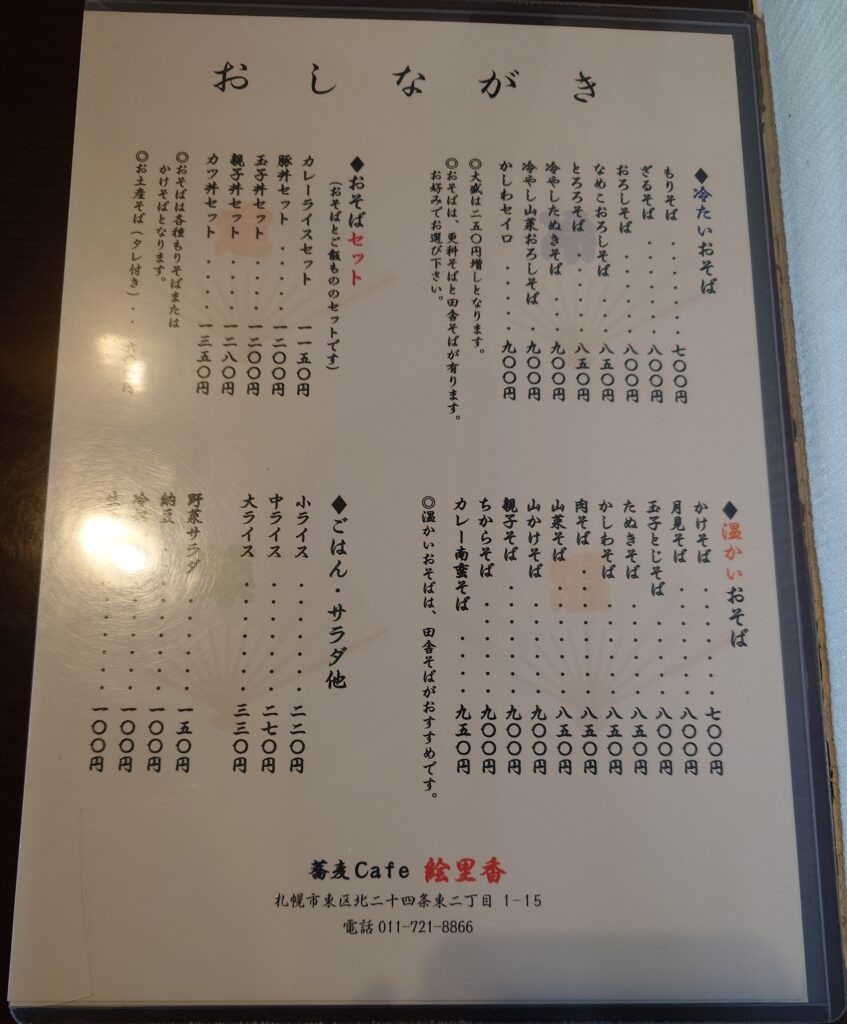 おしながき
◆冷たいおそば
もりそば・・・・・・・七〇〇円
ざるそば・・・・・・・八〇〇円
おろしそば・・・・・・八〇〇円
なめこおろしそば・・・八五〇円
とろろそば・・・・・・八五〇円
冷やしたぬきそば・・・九〇〇円
冷やし山菜おろしそば・九〇〇円
かしわセイロ・・・・・九〇〇円
◎大盛は二五〇円増しとなります。
◎おそばは、更科そばと田舎そばが有ります。
お好みでお選び下さい。
◆おそばセット
(おそばとご飯もののセットです)
カレーライスセット・・一一五〇円
豚丼セット・・・・・一二〇〇円
玉子丼セット・・・・一二〇〇円
親子丼セット・・・・一二八〇円
カツ丼セット・・・・一三五〇円
◎おそばは各種もりそばまたは
かけそばとなります。
◎お土産そば(タレ付き)・・六〇〇円
◆温かいおそば
かけそば・・・・・・・七〇〇円
月見そば・・・・・・・八〇〇円
玉子とじそば・・・・・八〇〇円
たぬきそば・・・・・・八五〇円
かしわそば・・・・・・八五〇円
肉そば・・・・・・・・八五〇円
山菜そば・・・・・・・八五〇円
山かけそば・・・・・・九〇〇円
親子そば・・・・・・・九〇〇円
ちからそば・・・・・・九〇〇円
カレー南蛮そば・・・・九五〇円
◎温かいおそばは、田舎そばがおすすめです。
◆ごはん・サラダ他
小ライス・・・・・・・二二〇円
中ライス・・・・・・・二七〇円
大ライス・・・・・・・三三〇円
野菜サラダ・・・・・・一五〇円
納豆・・・・・・・・・一〇〇円
冷・・・・・・・・一〇〇円
生・・・・・・・・一〇〇円
蕎麦Cafe 絵里香
札幌市東区北二十四条東二丁目 1-15
電話 011-721-8866